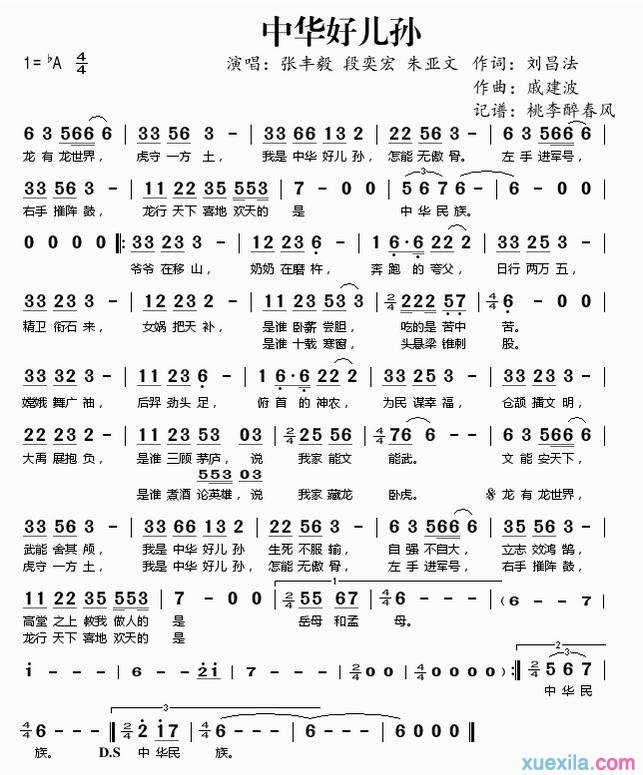 中华好儿孙
1=♭A 4/4 演唱：张丰毅 段奕宏 朱亚文 作词：刘昌法
作曲：戚建波
记谱：桃李醉春风
6 3 566 6 | 33 56 3 - | 33 66 13 2 | 22 56 3 - | 6 3 566 6 |
龙 有 龙世界， 虎守 一方 土， 我是 中华 好儿 孙， 怎能 无傲 骨。 左 手 进军号，
33 56 3 - | 11 22 35 553 | 7 - 0 0 | 5 6 7 6 - | 6 - 0 0 |
右手 擂阵 鼓， 龙行 天下 喜地 欢天的 是 中 华 民 族。
0 0 0 0 ‖: 33 23 3 - | 12 23 6 - | 1 6·6 22 2 | 33 25 3 - |
爷爷 在移 山， 奶奶 在磨 杵， 奔 跑 的 夸父， 日行 两万 五，
33 23 3 - | 11 23 2 - | 11 23 53 3 | 2/4 222 57 | 4/4 6 - 0 0 |
精卫 衔石 来， 女娲 把天 补， 是谁 卧薪 尝胆， 吃的是 苦中 苦。
是谁 十载 寒窗， 头悬梁 锥刺 股。
33 32 3 - | 11 23 6 - | 1 6·6 22 2 | 33 56 3 - | 22 56 3 - |
嫦娥 舞广 袖， 后羿 劲头 足， 俯 首 的 神农， 为民 谋幸 福， 仓颉 播文 明，
22 23 2 - | 11 23 53 03 | 2/4 25 56 | 4/4 76 6 - - | 6 3 566 6 |
大禹 展抱 负， 是谁 三顾 茅庐， 说 我家 能文 能武。 文 能 安天下，
553 03
是谁 煮酒 论英雄， 说 我家 藏龙 卧虎。 𝄋 龙 有 龙世界，
33 56 3 - | 33 66 13 2 | 22 56 3 - | 6 3 566 6 | 33 56 3 - |
武能 舍其 颅， 我是 中华 好儿 孙 生死 不服 输， 自 强 不自大， 立志 效鸿 鹄，
虎守 一方 土， 我是 中华 好儿 孙， 怎能 无傲 骨。 左 手 进军号， 右手 擂阵 鼓，
11 22 35 553 | 7 - 0 0 | 1 2/4 55 67 | 4/4 6 - - - | (6 - 7 -
高堂 之上 教我 做人的 是 岳母 和孟 母。
龙行 天下 喜地 欢天的 是
i - - - | 6 - 2i | 7 - - - | 2/4 0 0 | 4/4 0 0 0 0) :‖ 2 2/4 5 6 7 |
中 华 民
4/4 6 - - - ‖ 3 2/4 2 i7 | 4/4 6 - - - | 6 - - - | 6 0 0 0 ‖
族。 D.S 中 华民 族。
xuexila.com